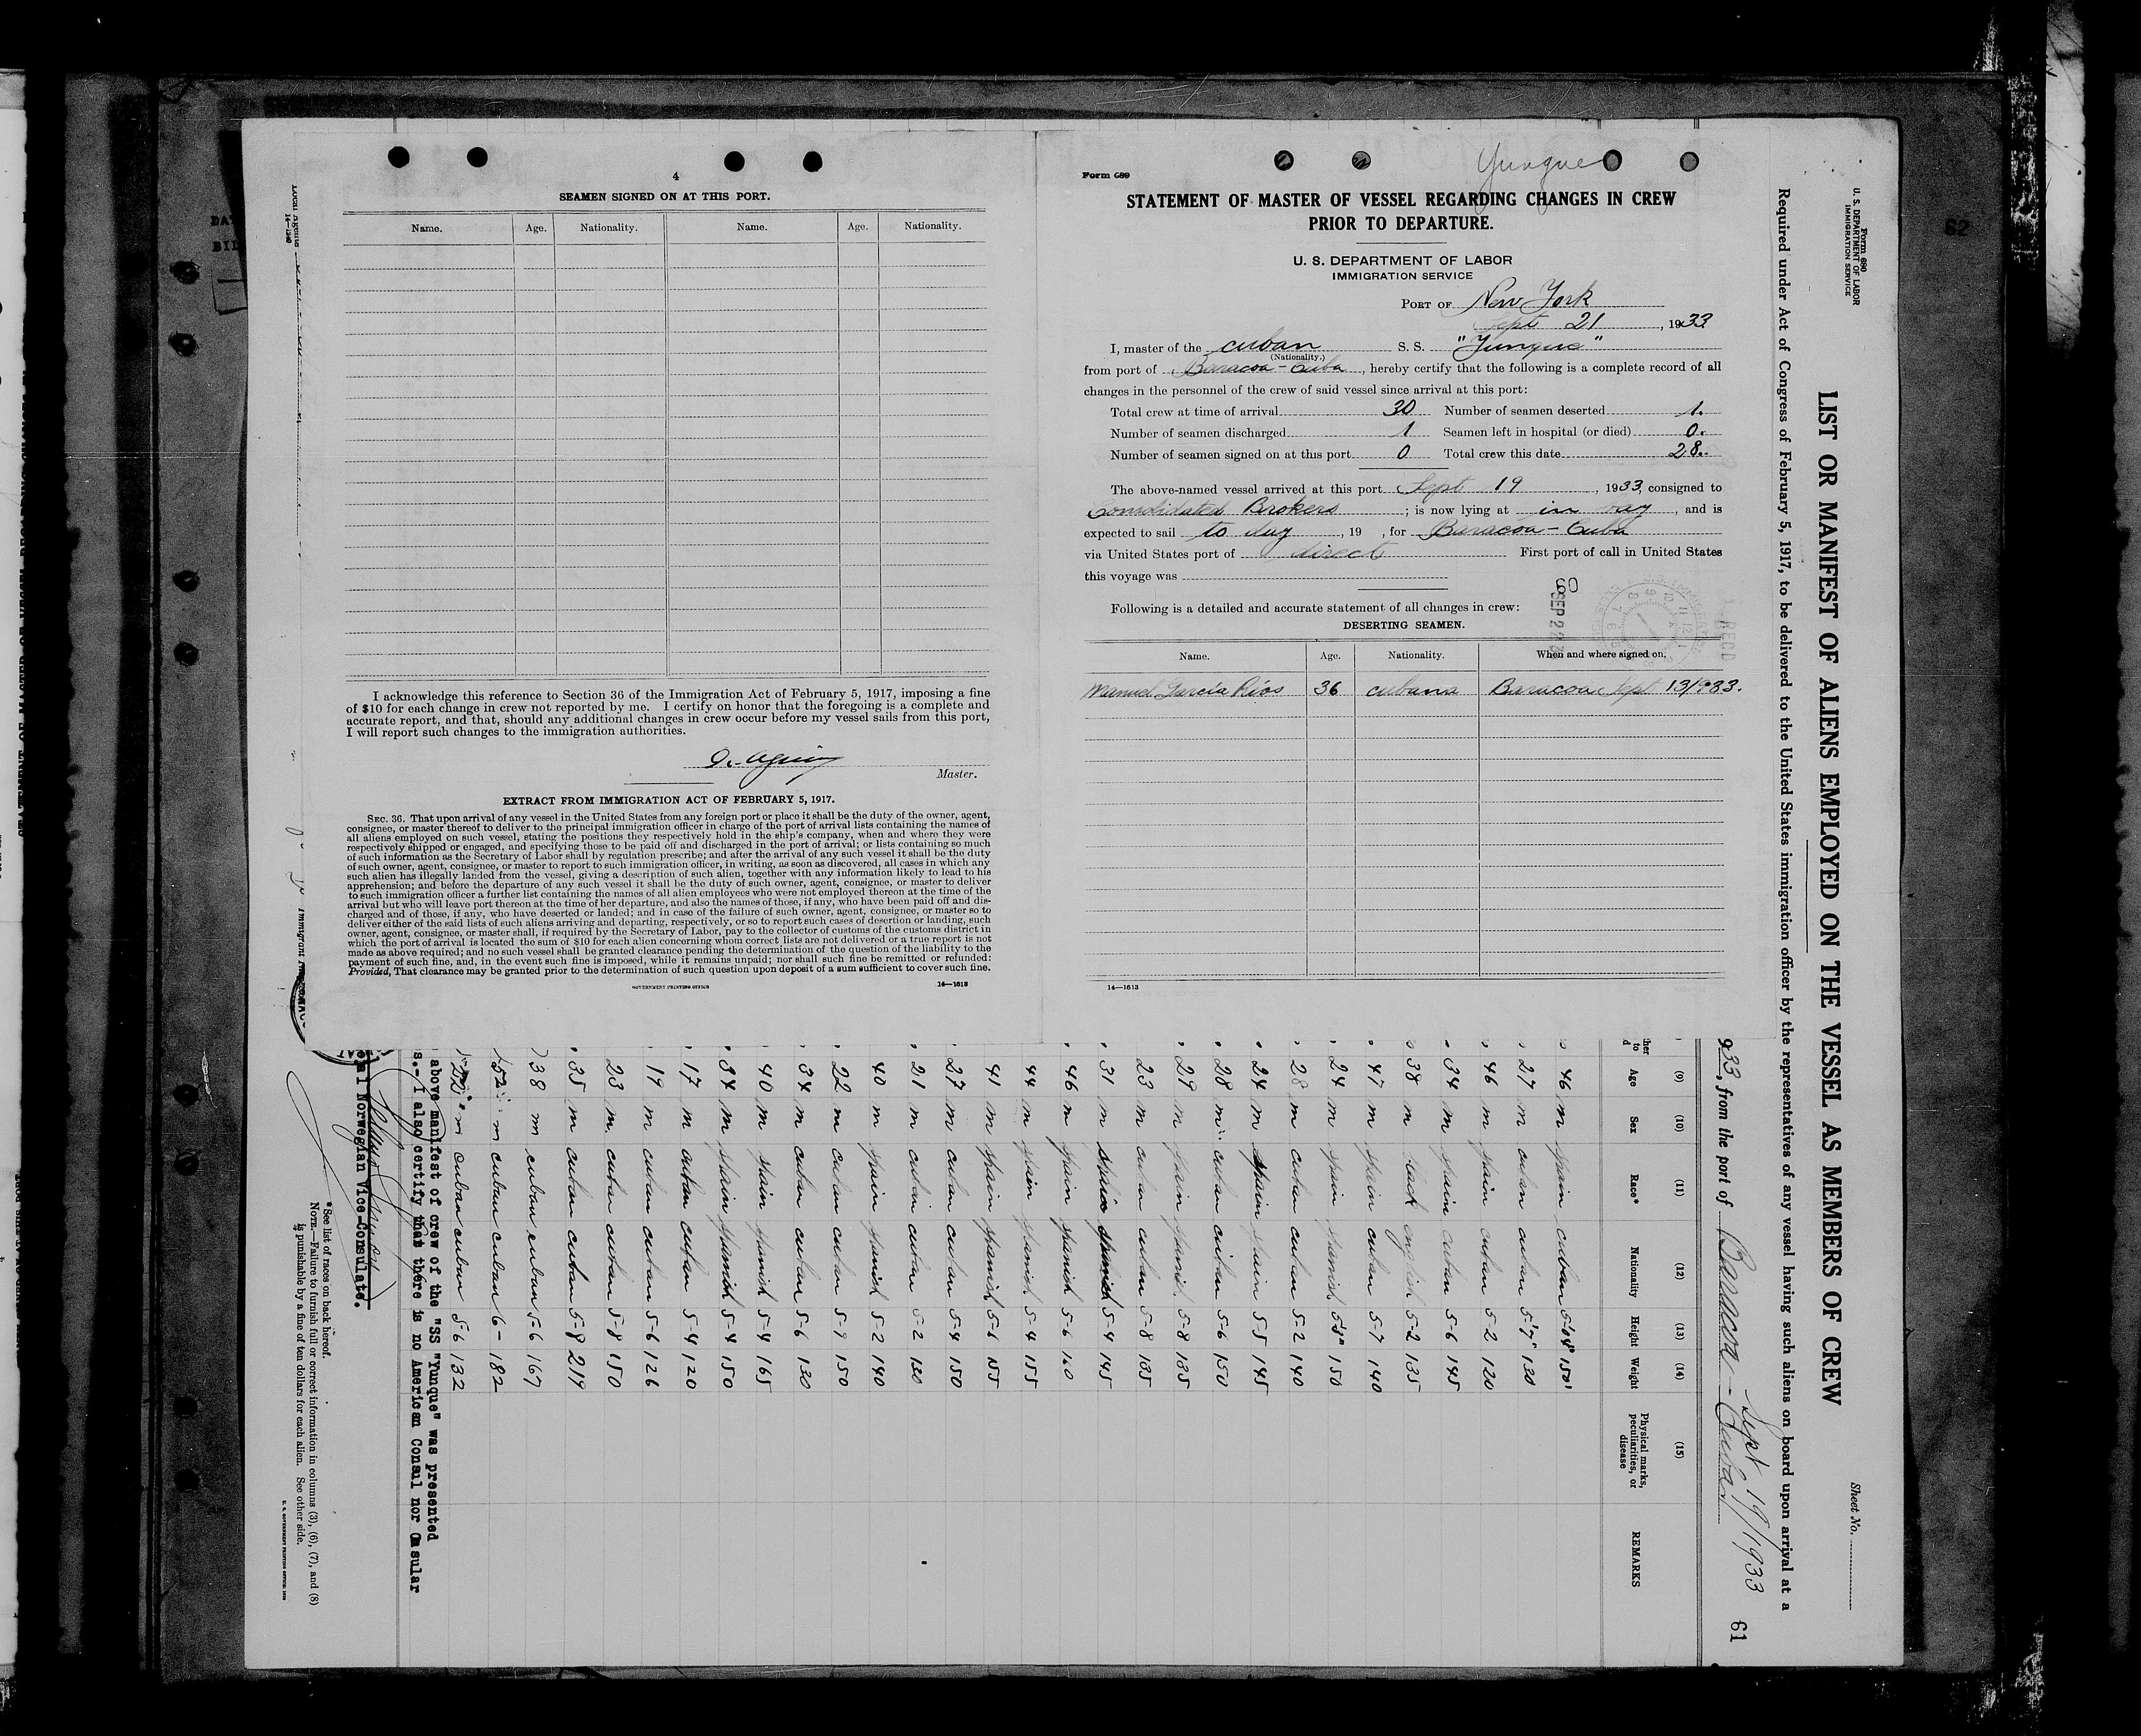 4
SEAMEN SIGNED ON AT THIS PORT.
Name. Age. Nationality. Name. Age. Nationality.
I acknowledge this reference to Section 36 of the Immigration Act of February 5, 1917, imposing a fine
of $10 for each change in crew not reported by me. I certify on honor that the foregoing is a complete and
accurate report, and that, should any additional changes in crew occur before my vessel sails from this port,
I will report such changes to the immigration authorities.
Master.
EXTRACT FROM IMMIGRATION ACT OF FEBRUARY 5, 1917.
SEC. 36. That upon arrival of any vessel in the United States from any foreign port or place it shall be the duty of the owner, agent,
consignee, or master thereof to deliver to the principal immigration officer in charge of the port of arrival lists containing the names of
all aliens employed on such vessel, stating the positions they respectively hold in the ship's company, when and where they were
respectively shipped or engaged, and specifying those to be paid off and discharged in the port of arrival; or lists containing so much
of such information as the Secretary of Labor shall by regulation prescribe; and after the arrival of any such vessel it shall be the duty
of such owner, agent, consignee, or master to report to such immigration officer, in writing, as soon as discovered, all cases in which any
such alien has illegally landed from the vessel, giving a description of such alien, together with any information likely to lead to his
apprehension; and before the departure of any such vessel it shall be the duty of such owner, agent, consignee, or master to deliver
to such immigration officer a further list containing the names of all alien employees who were not employed thereon at the time of the
arrival but who will leave port thereon at the time of her departure, and also the names of those, if any, who have been paid off and dis-
charged and of those, if any, who have deserted or landed; and in case of the failure of such owner, agent, consignee, or master so to
deliver either of the said lists of such aliens arriving and departing, respectively, or so to report such cases of desertion or landing, such
owner, agent, consignee, or master shall, if required by the Secretary of Labor, pay to the collector of customs of the customs district in
which the port of arrival is located the sum of $10 for each alien concerning whom correct lists are not delivered or a true report is not
made as above required; and no such vessel shall be granted clearance pending the determination of the question of the liability to the
payment of such fine, and, in the event such fine is imposed, while it remains unpaid; nor shall such fine be remitted or refunded:
Provided, That clearance may be granted prior to the determination of such question upon deposit of a sum sufficient to cover such fine.
GOVERNMENT PRINTING OFFICE 14—1613
Yunque
Form 689
STATEMENT OF MASTER OF VESSEL REGARDING CHANGES IN CREW
PRIOR TO DEPARTURE.
U. S. DEPARTMENT OF LABOR
IMMIGRATION SERVICE
PORT OF New York
Sept 21, 1933
I, master of the cuban S. S. "Yunque"
(Nationality.)
from port of Baracoa - Cuba, hereby certify that the following is a complete record of all
changes in the personnel of the crew of said vessel since arrival at this port:
Total crew at time of arrival 30 Number of seamen deserted 1.
Number of seamen discharged 1 Seamen left in hospital (or died) 0.
Number of seamen signed on at this port 0 Total crew this date 28.
The above-named vessel arrived at this port Sept 19, 1933, consigned to
Consolidated Brokers; is now lying at in bay, and is
expected to sail to day, 19 , for Baracoa - Cuba
via United States port of direct First port of call in United States
this voyage was
Following is a detailed and accurate statement of all changes in crew:
DESERTING SEAMEN.
Name. Age. Nationality. When and where signed on.
Manuel Garcia Rios 36 cubana Baracoa Sept 13/933.
14—1613
Form 680
U. S. DEPARTMENT OF LABOR
IMMIGRATION SERVICE
Sheet No.
LIST OR MANIFEST OF ALIENS EMPLOYED ON THE VESSEL AS MEMBERS OF CREW
Required under Act of Congress of February 5, 1917, to be delivered to the United States immigration officer by the representatives of any vessel having such aliens on board upon arrival at a
Sept 19/1933
933, from the port of Baracoa - Cuba
61
(9) (10) (11) (12) (13) (14) (15)
Age Sex Race* Nationality Height Weight Physical marks, peculiarities, or disease REMARKS
46 m spain cuban 150
27 m cuban cuban 5'7" 130
46 m spain cuban 5-2 120
34 m spain cuban 5-6 145
38 m black english 5-2 135
47 m spain cuban 5-7 140
24 m spain spanish 5'8" 150
28 m cuban cuban 5-2 140
24 m spain spain 5-5 145
28 m cuban cuban 5-6 150
29 m spain spanish 5-8 135
23 m cuban cuban 5-8 135
31 m spain spanish 5-4 145
46 m spain spanish 5-6 160
44 m spain spanish 5-4 155
41 m spain spanish 5-6 155
27 m cuban cuban 5-4 150
21 m cuban cuban 5-2 130
40 m spain spanish 5-2 140
22 m cuban cuban 5-9 150
34 m cuban cuban 5-6 130
40 m spain spanish 5-4 165
34 m spain spanish 5-4 150
17 m cuban cuban 5-4 120
19 m cuban cuban 5-6 126
23 m cuban cuban 5-8 150
35 m cuban cuban 5-8 219
38 m cuban cuban 5-6 167
52 m cuban cuban 6- 182
m cuban cuban 5-6 132
above manifest of crew of the "SS "Yunque" was presented
s.- I also certify that there is no American Consul nor Consular
al Norwegian Vice-Consulate.
*See list of races on back hereof.
NOTE.—Failure to furnish full or correct information in columns (3), (6), (7), and (8)
is punishable by a fine of ten dollars for each alien. See other side.
62